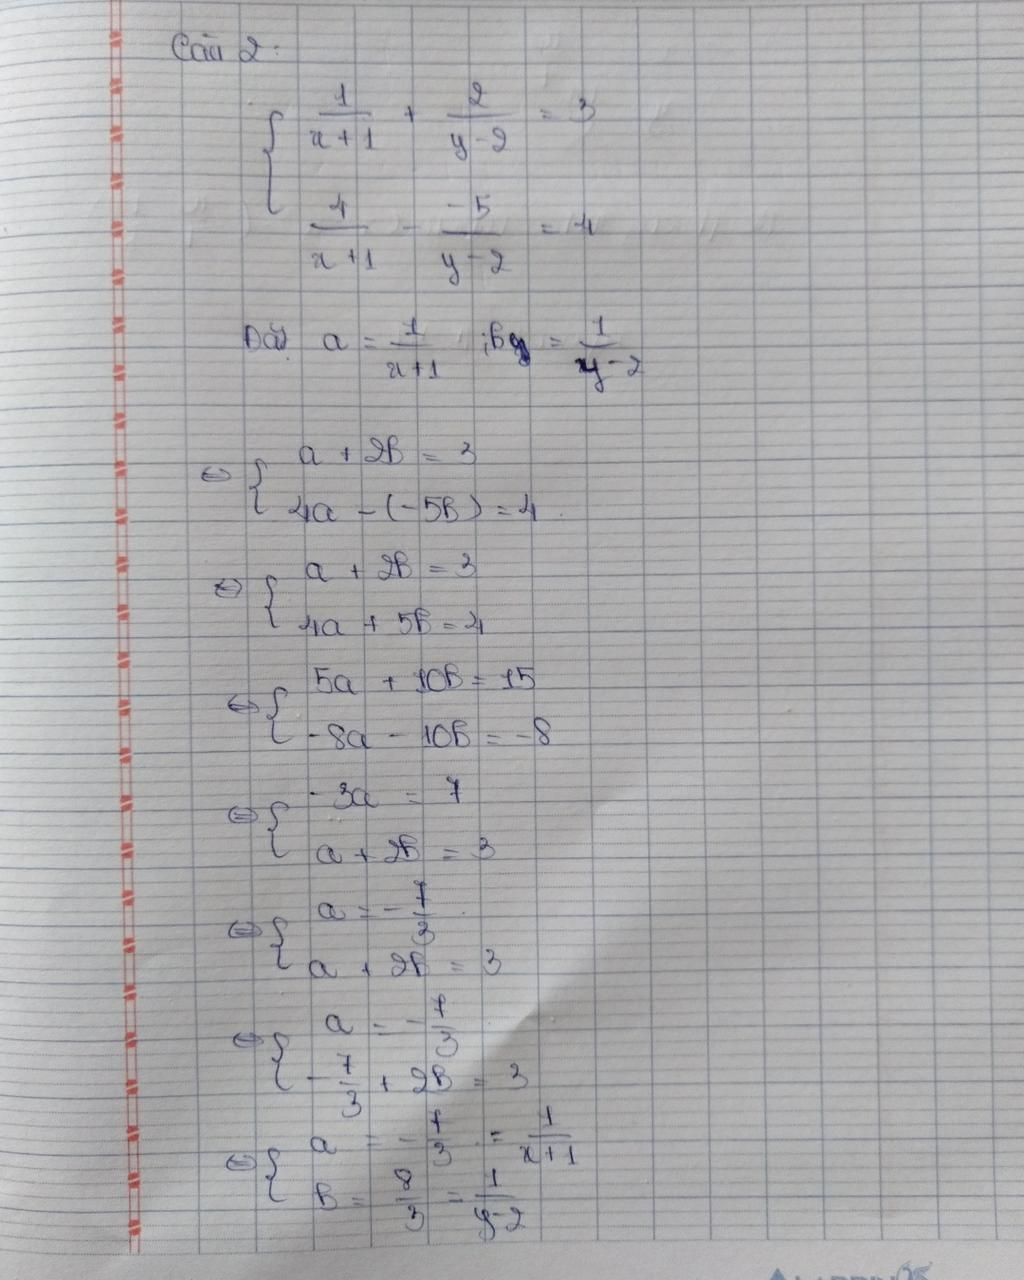 Câu 2:
{ 1/(x+1) + 2/(y-2) = 3
4/(x+1) - -5/(y-2) = 4
Đặt a = 1/(x+1) ; B = 1/(y-2)
⇔ { a + 2B = 3
4a - (-5B) = 4
⇔ { a + 2B = 3
4a + 5B = 4
⇔ { 5a + 10B = 15
-8a - 10B = -8
⇔ { -3a = 7
a + 2B = 3
⇔ { a = -7/3
a + 2B = 3
⇔ { a = -7/3
-7/3 + 2B = 3
⇔ { a = -7/3 = 1/(x+1)
B = 8/3 = 1/(y-2)